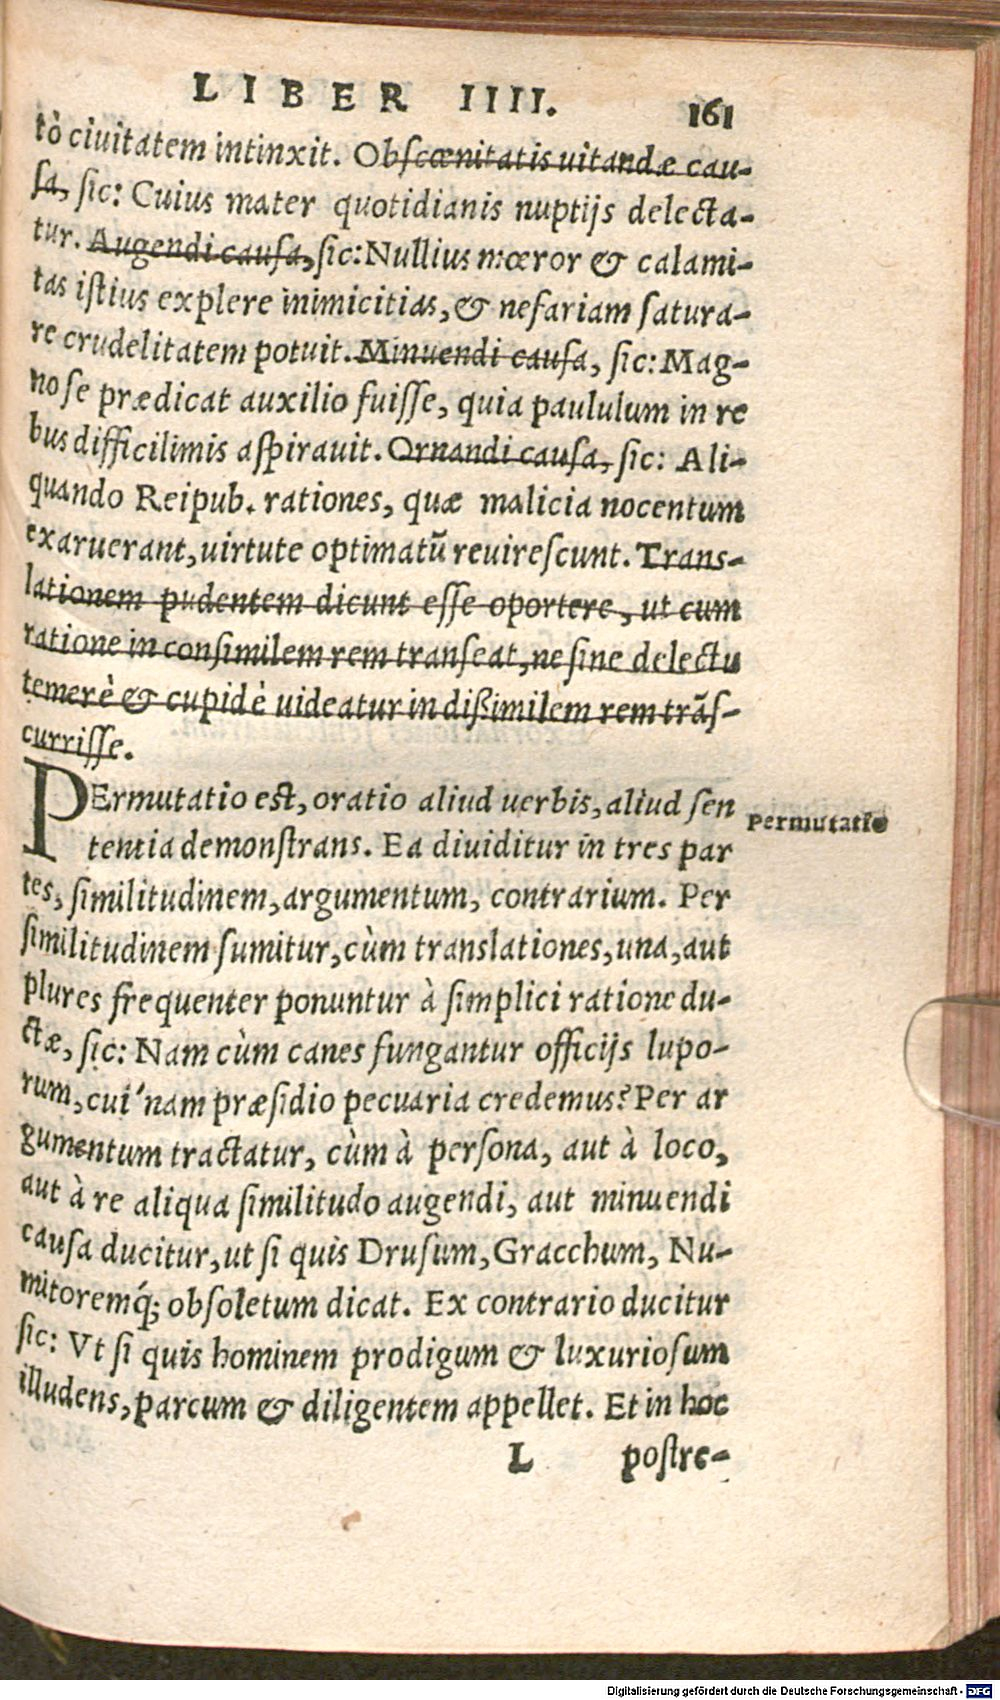 LIBER IIII. 161
tò ciuitatem intinxit. Obscœnitatis uitandæ cau-
sa, sic: Cuius mater quotidianis nuptijs delecta-
tur. Augendi causa, sic: Nullius mœror & calami-
tas istius explere inimicitias, & nefariam satura-
re crudelitatem potuit. Minuendi causa, sic: Mag-
no se prædicat auxilio fuisse, quia paululum in re
bus difficilimis aspirauit. Ornandi causa, sic: Ali-
quando Reipub. rationes, quæ malicia nocentum
exaruerant, uirtute optimatū reuirescunt. Trans-
lationem pudentem dicunt esse oportere, ut cum
ratione in consimilem rem transeat, ne sine delectu
temerè & cupidè uideatur in dißimilem rem trãs-
currisse.
PErmutatio est, oratio aliud uerbis, aliud sen
Permutatio
tentia demonstrans. Ea diuiditur in tres par
tes, similitudinem, argumentum, contrarium. Per
similitudinem sumitur, cùm translationes, una, aut
plures frequenter ponuntur à simplici ratione du-
ctæ, sic: Nam cùm canes fungantur officijs lupo-
rum, cui'nam præsidio pecuaria credemus? Per ar
gumentum tractatur, cùm à persona, aut à loco,
aut à re aliqua similitudo augendi, aut minuendi
causa ducitur, ut si quis Drusum, Gracchum, Nu-
mitoremq́; obsoletum dicat. Ex contrario ducitur
sic: Vt si quis hominem prodigum & luxuriosum
illudens, parcum & diligentem appellet. Et in hoc
L postre-
Digitalisierung gefördert durch die Deutsche Forschungsgemeinschaft - DFG